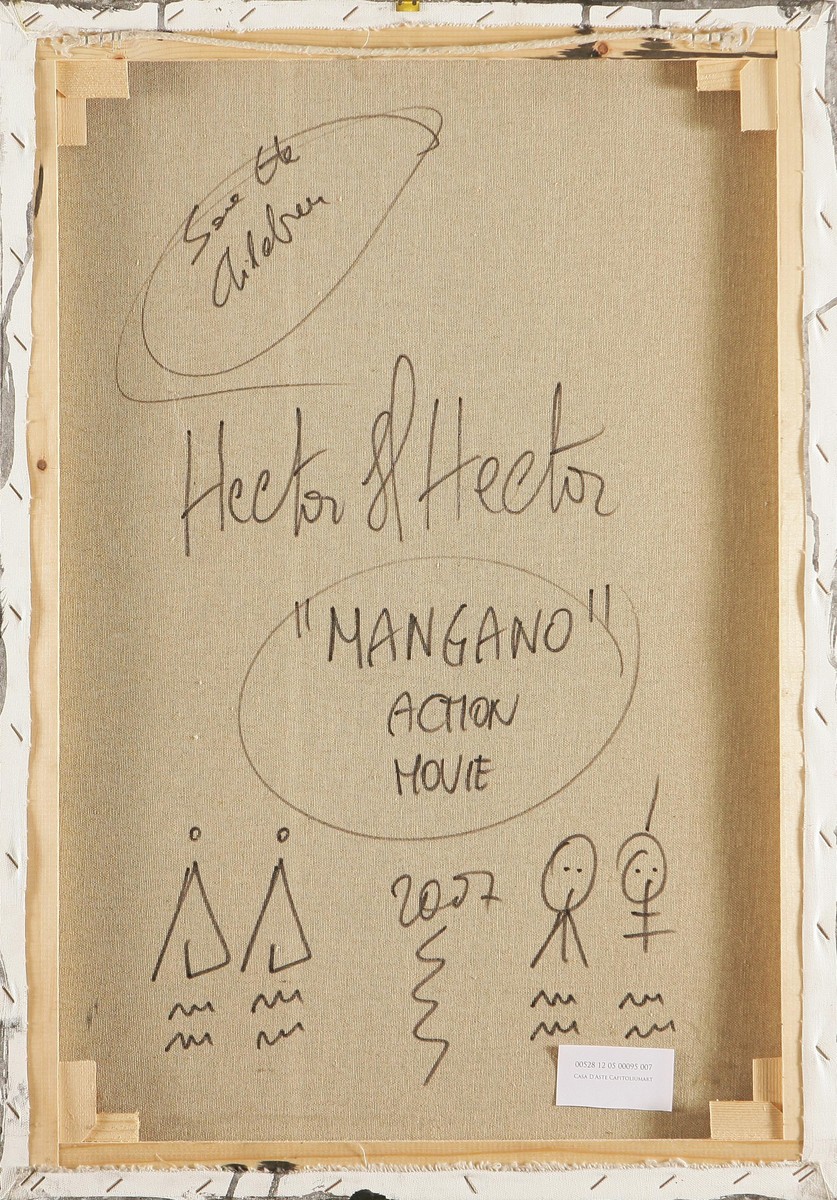 Save the
Children
Hector & Hector
"MANGANO"
ACTION
MOVIE
2007
00528 12 05 00095 007
CASA D'ASTE CAPITOLIUMART